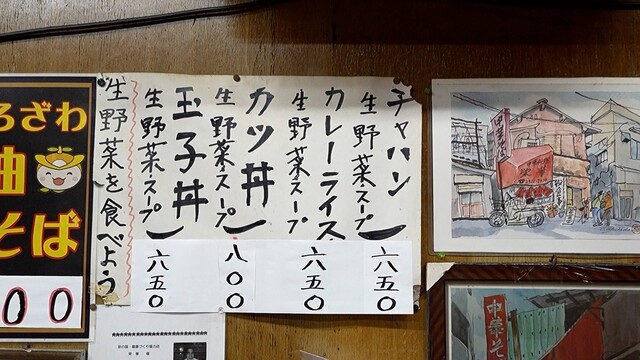 チャハン
生野菜・スープ
六五〇
カレーライス
生野菜・スープ
六五〇
カツ丼
生野菜・スープ
八〇〇
玉子丼
生野菜・スープ
六五〇
生野菜を食べよう
ろざわ
油
そば
00
中華そば
中華そ